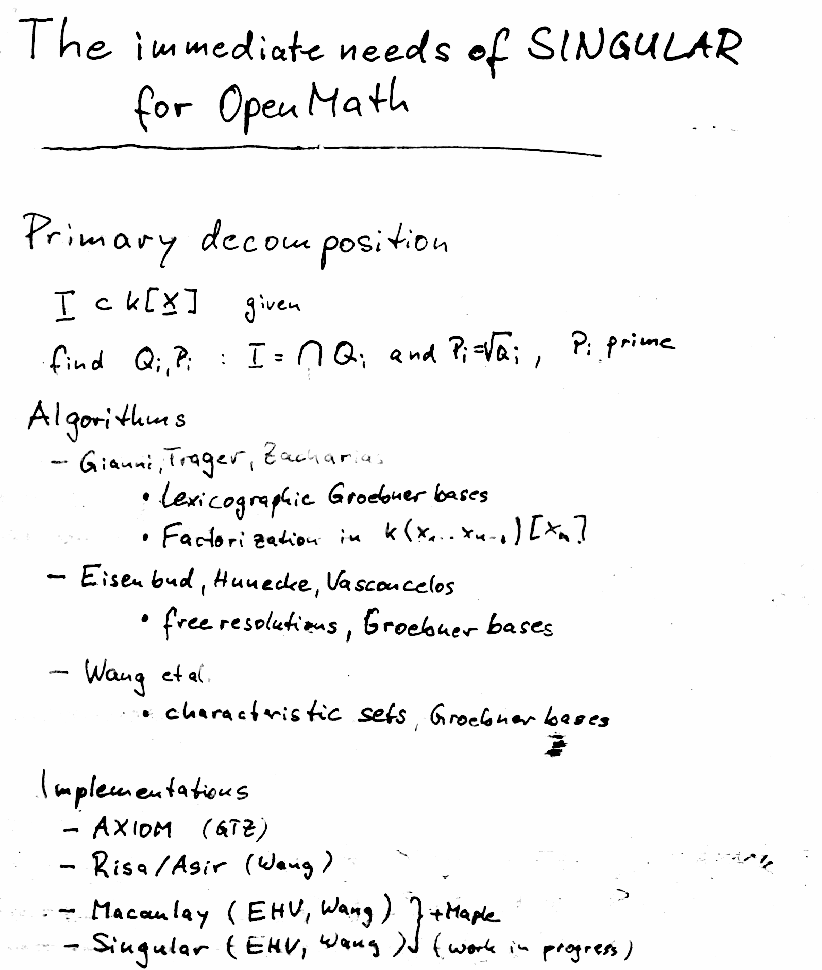 The immediate needs of SINGULAR
for OpenMath
Primary decomposition
I ⊂ k[x] given
find Qi, Pi : I = ∩ Qi and Pi=√Qi, Pi prime
Algorithms
– Gianni, Trager, Zacharias
• Lexicographic Groebner bases
• Factorization in k(x1...xn-1)[xn]
– Eisenbud, Hunecke, Vasconcelos
• free resolutions, Groebner bases
– Wang et al.
• characteristic sets, Groebner bases
Implementations
– AXIOM (GTZ)
– Risa/Asir (Wang)
– Macaulay (EHV, Wang) } +Maple
– Singular (EHV, Wang) } (work in progress)